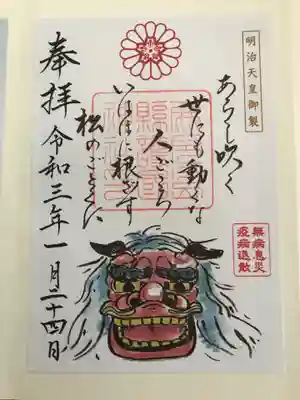 明治天皇御製
あらし吹く
世にも動くな
人ごころ
いはほに根ざす
松のごとくに
奉拝 令和三年一月二十四日
無病息災
疫病退散